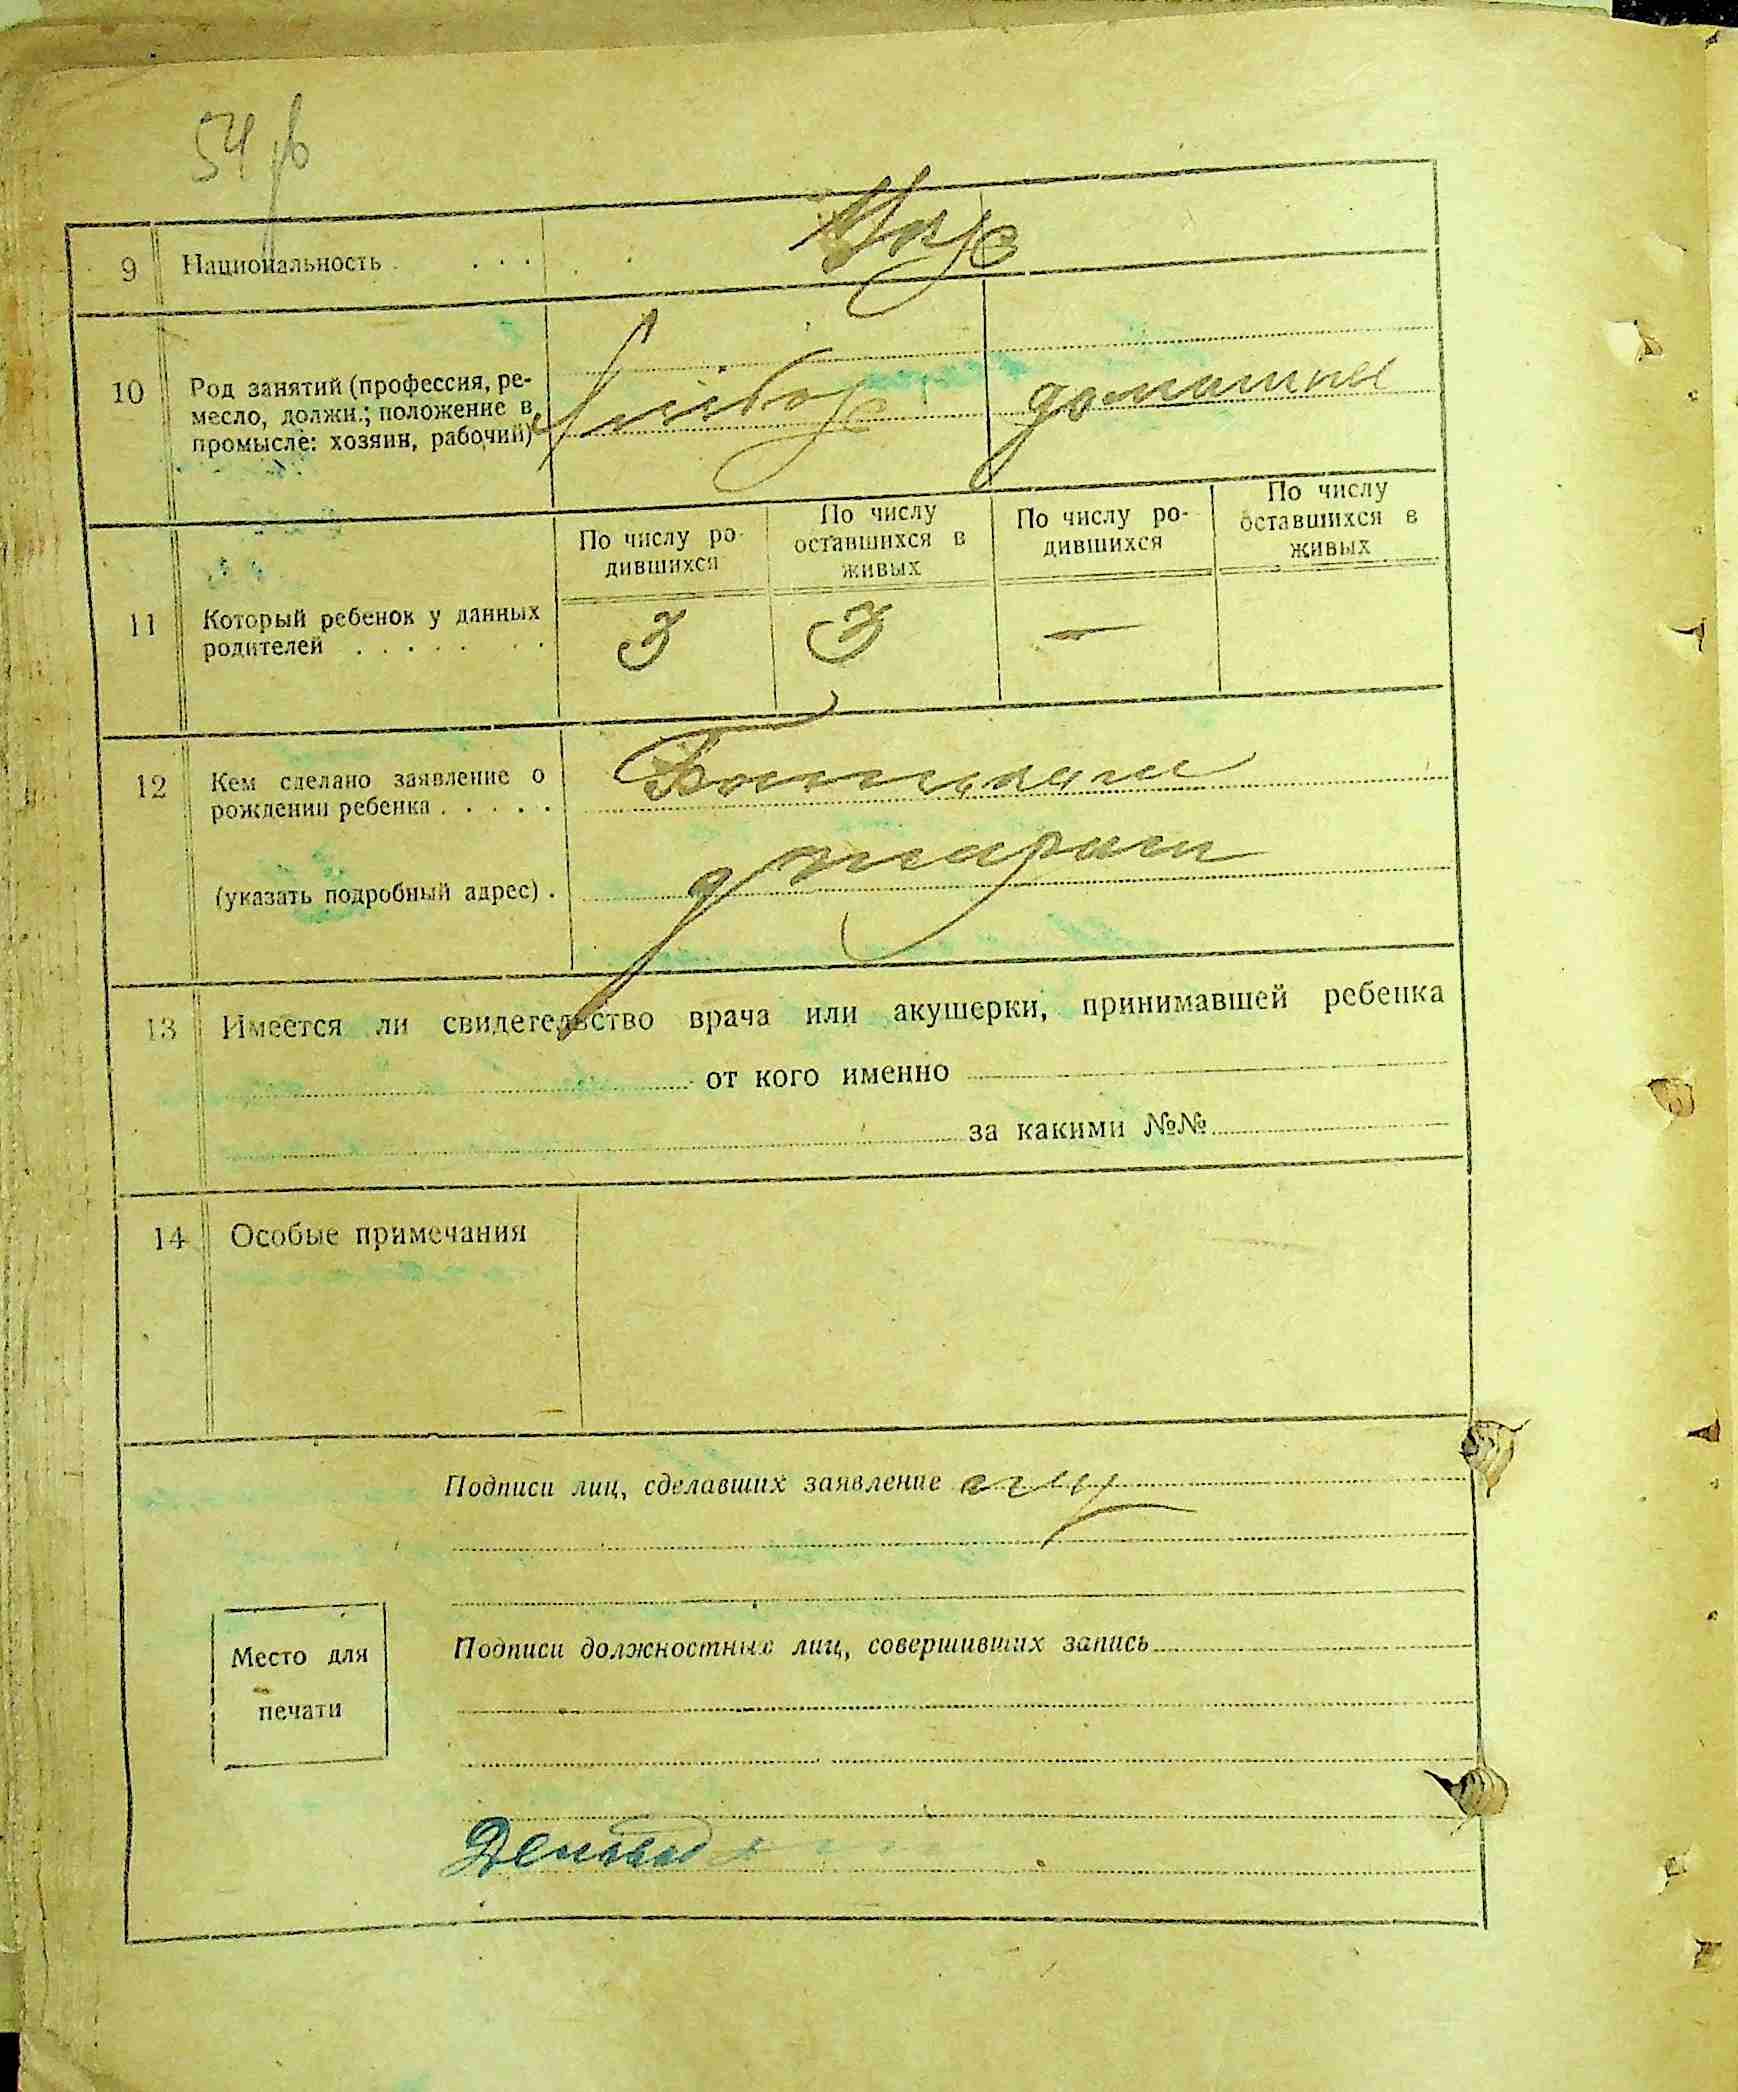 54
9 Национальность . . . .
10 Род занятий (профессия, ре-
месло, должн.; положение в
промысле: хозяин, рабочий)
домашнее
По числу ро-
дившихся
По числу
оставшихся в
живых
По числу ро-
дившихся
По числу
оставшихся в
живых
11 Который ребенок у данных
родителей . . . . . . .
3 3 —
12 Кем сделано заявление о
рождении ребенка . . . . .
(указать подробный адрес) .
13 Имеется ли свидетельство врача или акушерки, принимавшей ребенка
от кого именно
за какими №№
14 Особые примечания
Подписи лиц, сделавших заявление
Место для
печати
Подписи должностных лиц, совершивших запись